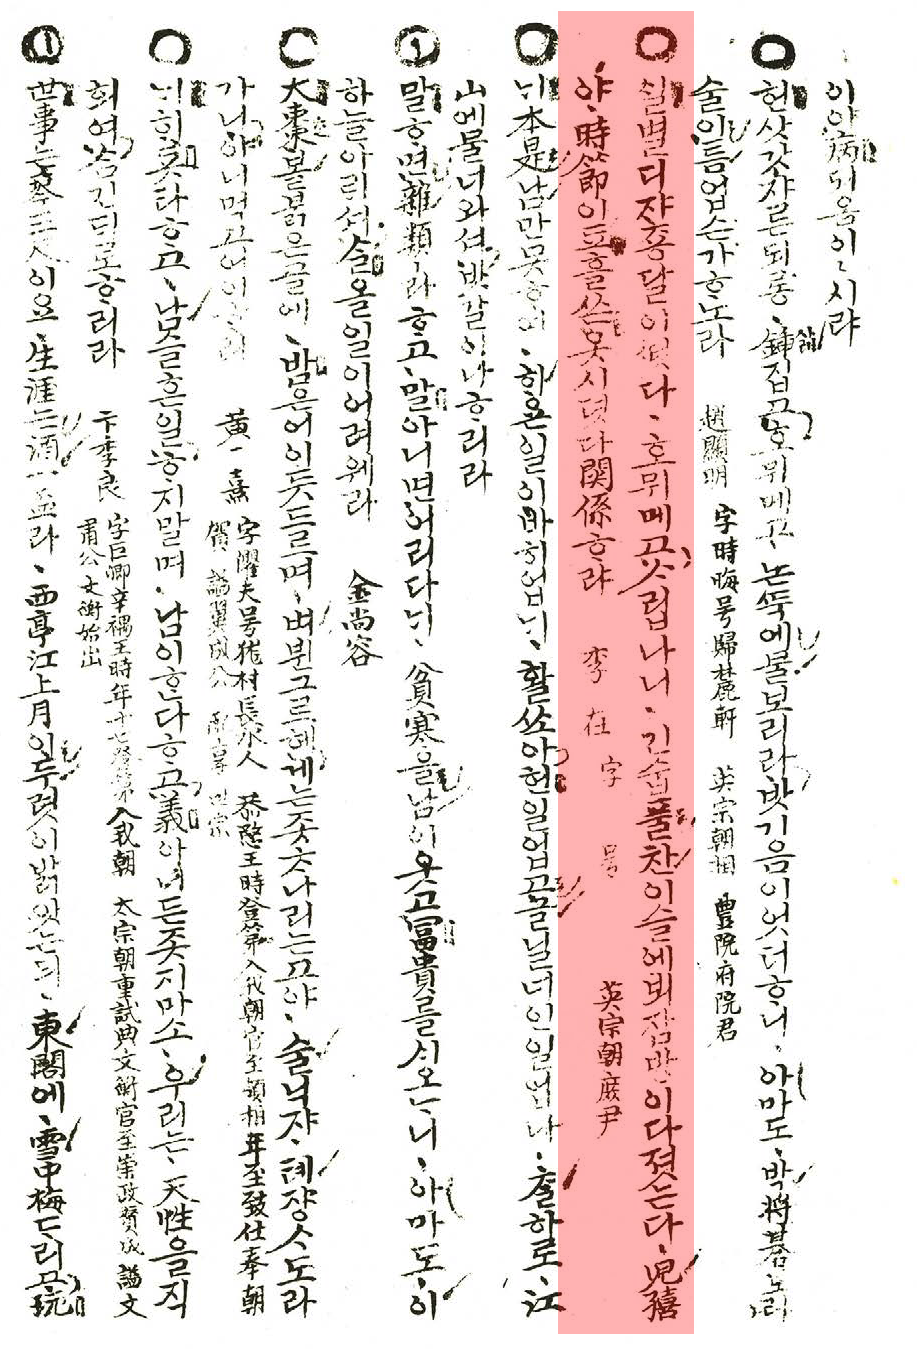 이야病되옴이、시랴
헌삿갓쟈른되롱、鍤집고호뮈메고、논뚝에물보리라밧기음이엇더ᄒᆞ니、아마도、박將碁보리
술잇틈업슨가ᄒᆞ노라 趙顯明 字時晦号歸麓軒 英宗朝相 豊院府院君
실별디쟈죵달이ᄯᅥᆺ다、호뮈메고、사립나니、긴숩풀찬이슬에뵈잠방이다젓는다、兒禧
야、時節이됴흘쓴옷시젓다關係ᄒᆞ랴 李在 字 号 英宗朝府尹
ᄂᆡ本是남만못ᄒᆞ여、ᄒᆞ온일이바히업ᄂᆡ、활쏘아헌일업고글닐너인일업다、ᄎᆞᆯ하로、江
山에물너와셔、밧갈이나ᄒᆞ리라
말ᄒᆞ면雜類ㅣ라ᄒᆞ고、말아니면어리다ᄂᆡ、貧寒을남이웃고富貴를ᄉᆡ오ᄂᆞ니、아마도、이
하늘아ᄅᆡ셔、ᄉᆞᆯ올일이어려웨라 金尙容
大棗볼붉은골에、밤은어이듯드르며、벼뷘그르헤게는죳ᄎᆞ나리는고야、술닉쟈、톄쟝ᄉᆞ도라
가니아니먹고어이ᄒᆞ리 黃喜 字懼夫号厖村長水人 恭愍王時登第入我朝官至領相年至致仕奉朝
賀 謚翼成公 配享世宗
ᄂᆡ히죳타ᄒᆞ고、남슬흔일ᄒᆞ지말며、남이ᄒᆞᆫ다ᄒᆞ고義아녀든죳지마소、우리는、天性을직
희여삼긴ᄃᆡ로ᄒᆞ리라 卞季良 字巨卿辛禑王時年十七登第入我朝 太宗朝重試典文衡官至崇政贊成 謚文
肅公文衡始出
世事는琴三尺이요、生涯는酒一盃라、西亭江上月이두렷이밝앗는ᄃᆡ、東閣에、雪中梅ᄃᆞ리고玩